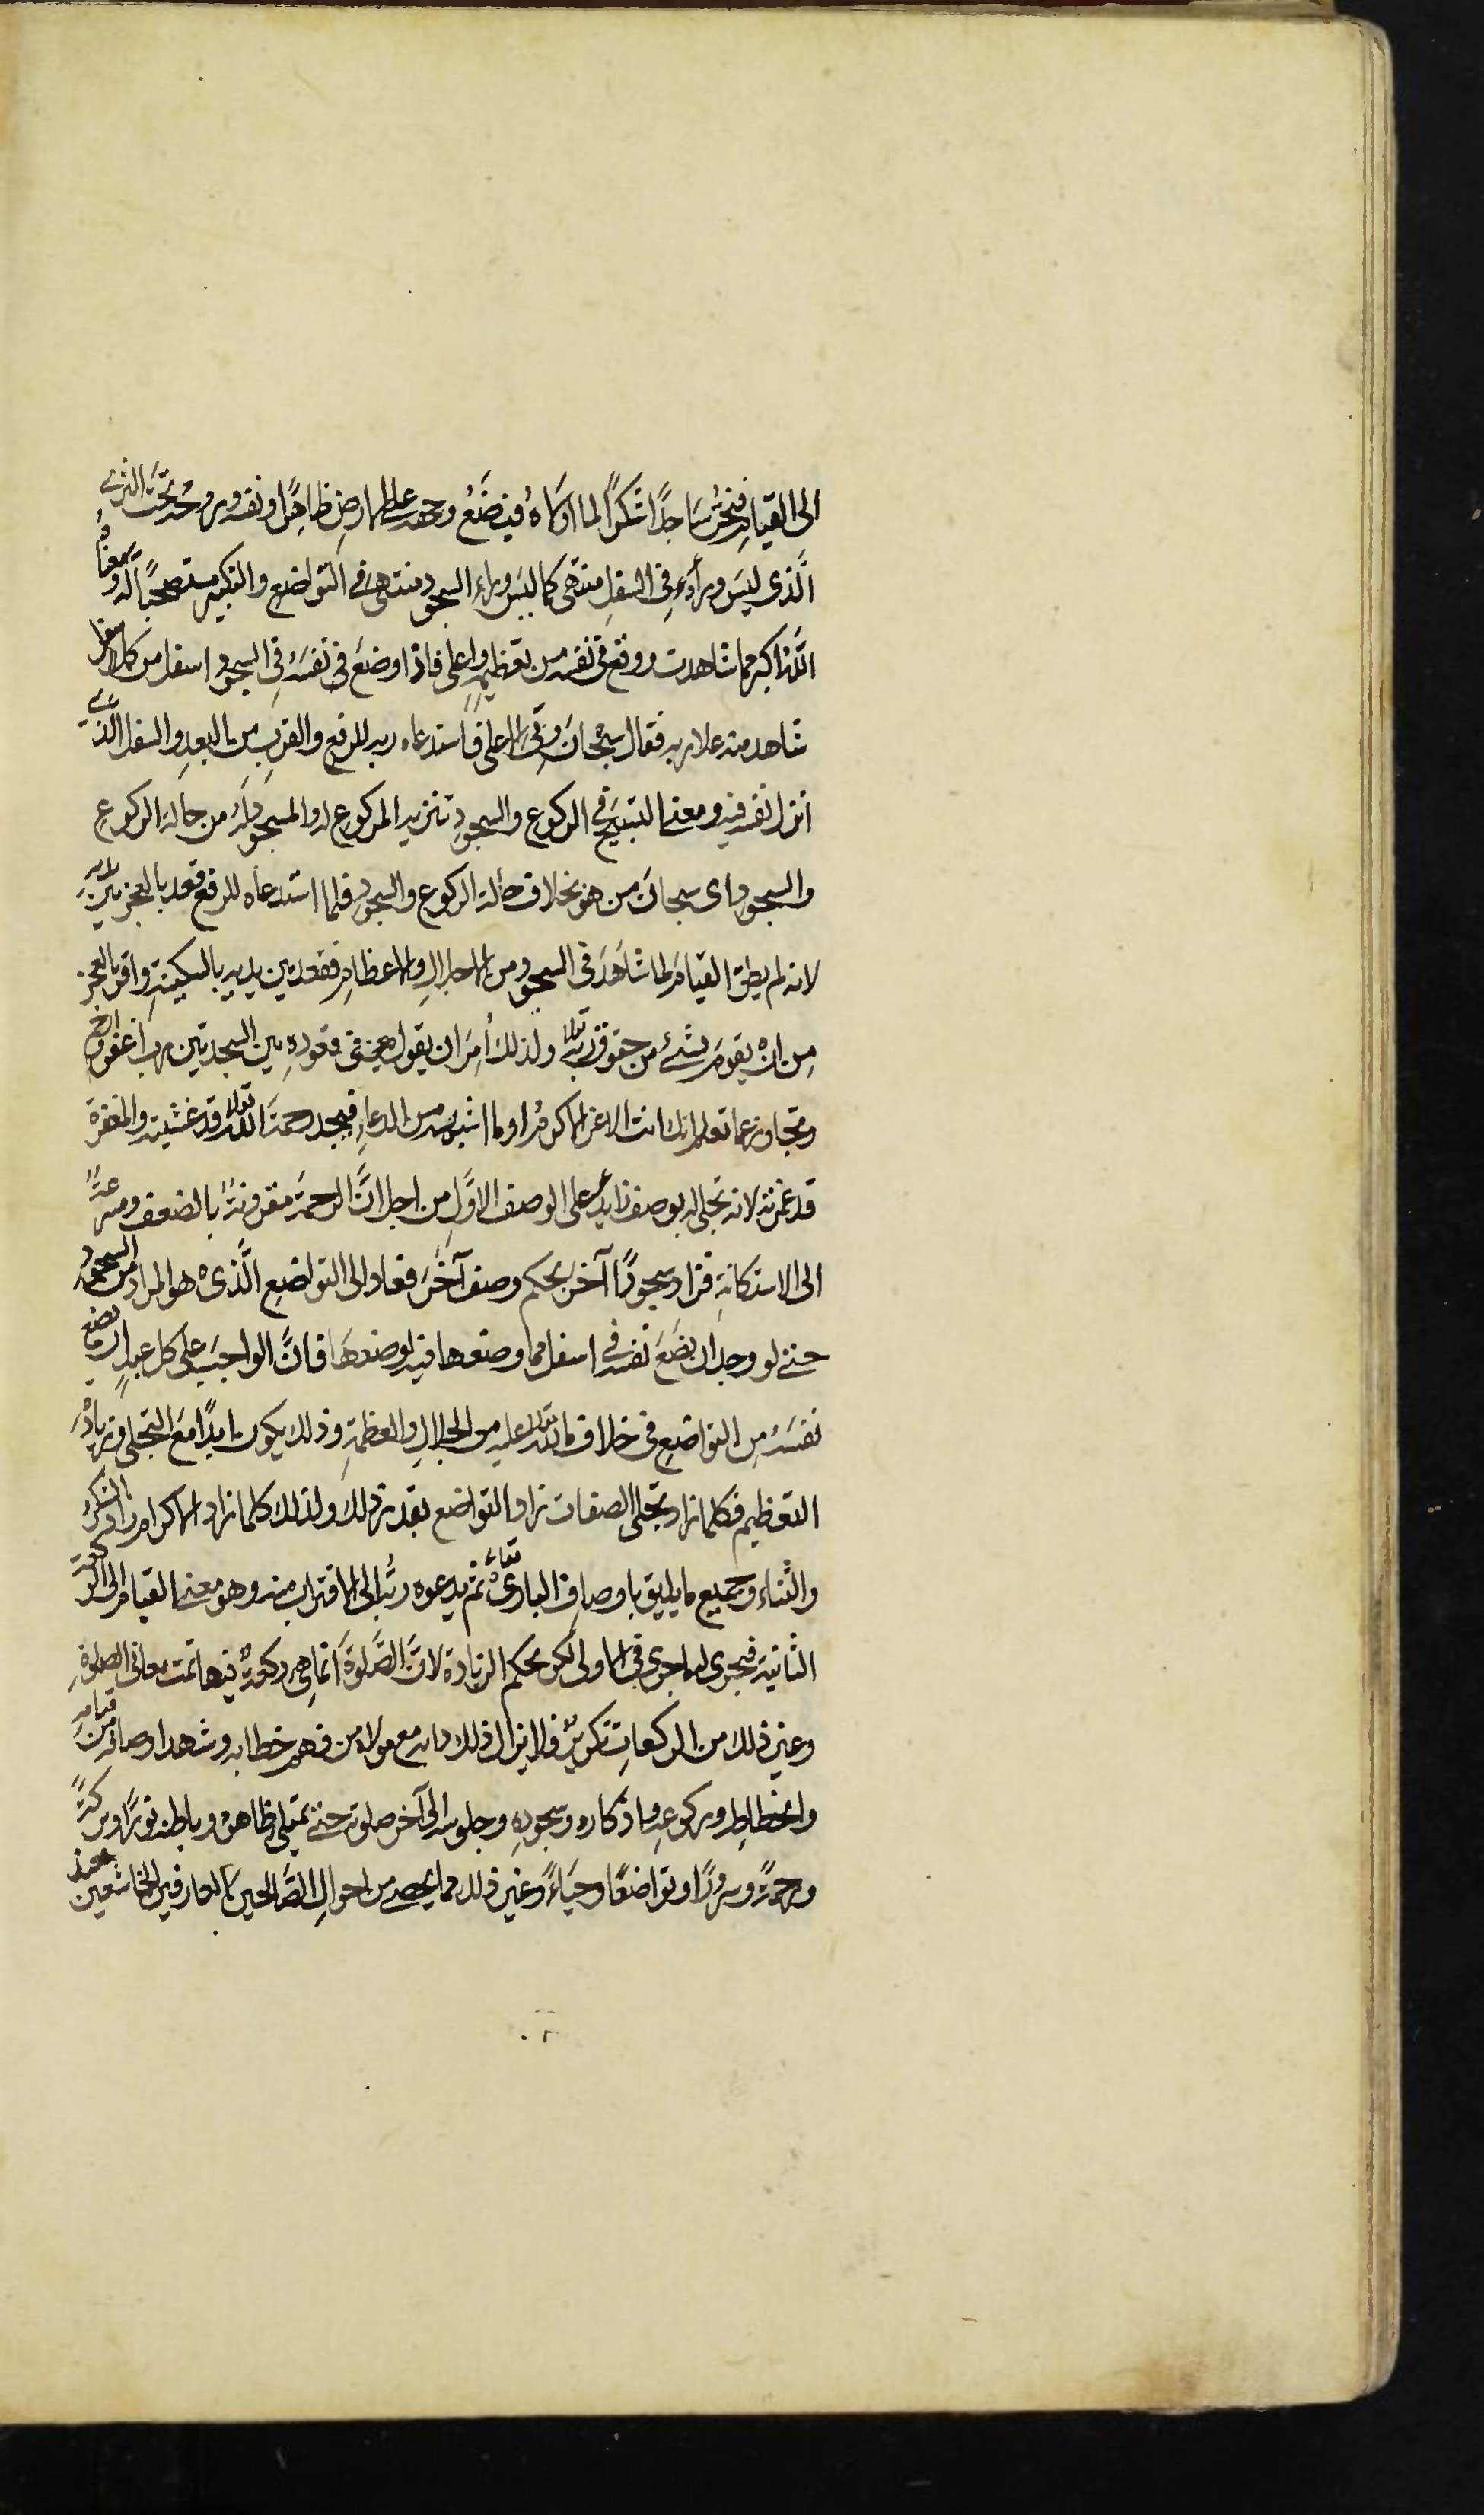 الى القيام فيخر ساجدًا شكرًا لما اولاه فيضع وجهه على الارض ظاهرًا ونفسه وروحه تحت الثرى
الَّذى ليسَ وراءه فى السفل منتهى كما ليس وراء السجود منتهى فى التواضع والتكبير مستصحبًا له ومعناه
الله اكبر مما شاهدت ووقع فى نفسه من تعظيمه واعلى فاذا وضع فى نفسه فى السجود اسفل من كل اسفل
شاهد منه علا ربه فقال سبحان ربى الاعلى فاستدعاه ربه للرفع والقرب من البعد والسفل الذى
انزل نفسه فيه ومعنى التسبيح فى الركوع والسجود تنزيه المركوع له والمسجود له من حالة الركوع
والسجود اى سبحان من هو بخلاف حالة الركوع والسجود فلما استدعاه للرفع قعد بالعجز بين يديه
لانه لم يطق القيام لما شاهد فى السجود من الاجلال والاعظام فقعد بين يديه بالسكينة واقر بالعجز
من ان يقوم بشئ من حقوق ربه تعالى ولذلك اُمِرَ ان يقول فى قعوده بين السجدتين رب اغفر وارحم
وتجاوز عما تعلم انك انت الاعز الاكرم او ما اشبهه من الدعاء فيجد رحمة الله تعالى قد غشيته والمغفرة
قد غمرته لانه تجلى له بوصف زايد على الوصف الاوَّل من اجل انَّ الرحمة مقرونة بالضعف ومسرعة
الى الاستكانة فزاد سجودًا آخر بحكم وصف آخر فعاد الى التواضع الَّذى هو المراد من السجود
حتى لو وجد ان يضع نفسه فى اسفل مما وضعها فيه لوضعها فانَّ الواجب على كل عبد ان يضع
نفسه من التواضع فى خلاف ما الله تعالى عليه من الجلال والعظمة وذلك يكون ابدًا مع التجلى وزيادة
التعظيم فكلما زاد تجلى الصفات زاد التواضع بقدر ذلك ولذلك كلما زاد الاكرام زاد الشكر
والثناء وجميع ما يليق باوصاف البارى تعالى ثم يدعوه ربه الى الاقتراب منه وهو معنى القيام الى الركعة
الثانية فيجرى له ما جرى فى الاولى لكن بحكم الزيادة لانَّ الصَّلوة انما هى ركعة فيها تمت معانى الصلوة
وغير ذلك من الركعات تكرير فلا يزال ذلك دابه مع مولاه من فهم خطابه وشهد اوصافه من قيامه
وانحطاطه وركوعه واذكاره وسجوده وجلوسه الى آخر صلوته حتى يمتلى ظاهره وباطنه نورًا وبركةً
ورحمةً وسرورًا وتواضعًا وحياءً وغير ذلك مما يحصى من احوال الصَّالحين العارفين الخاشعين